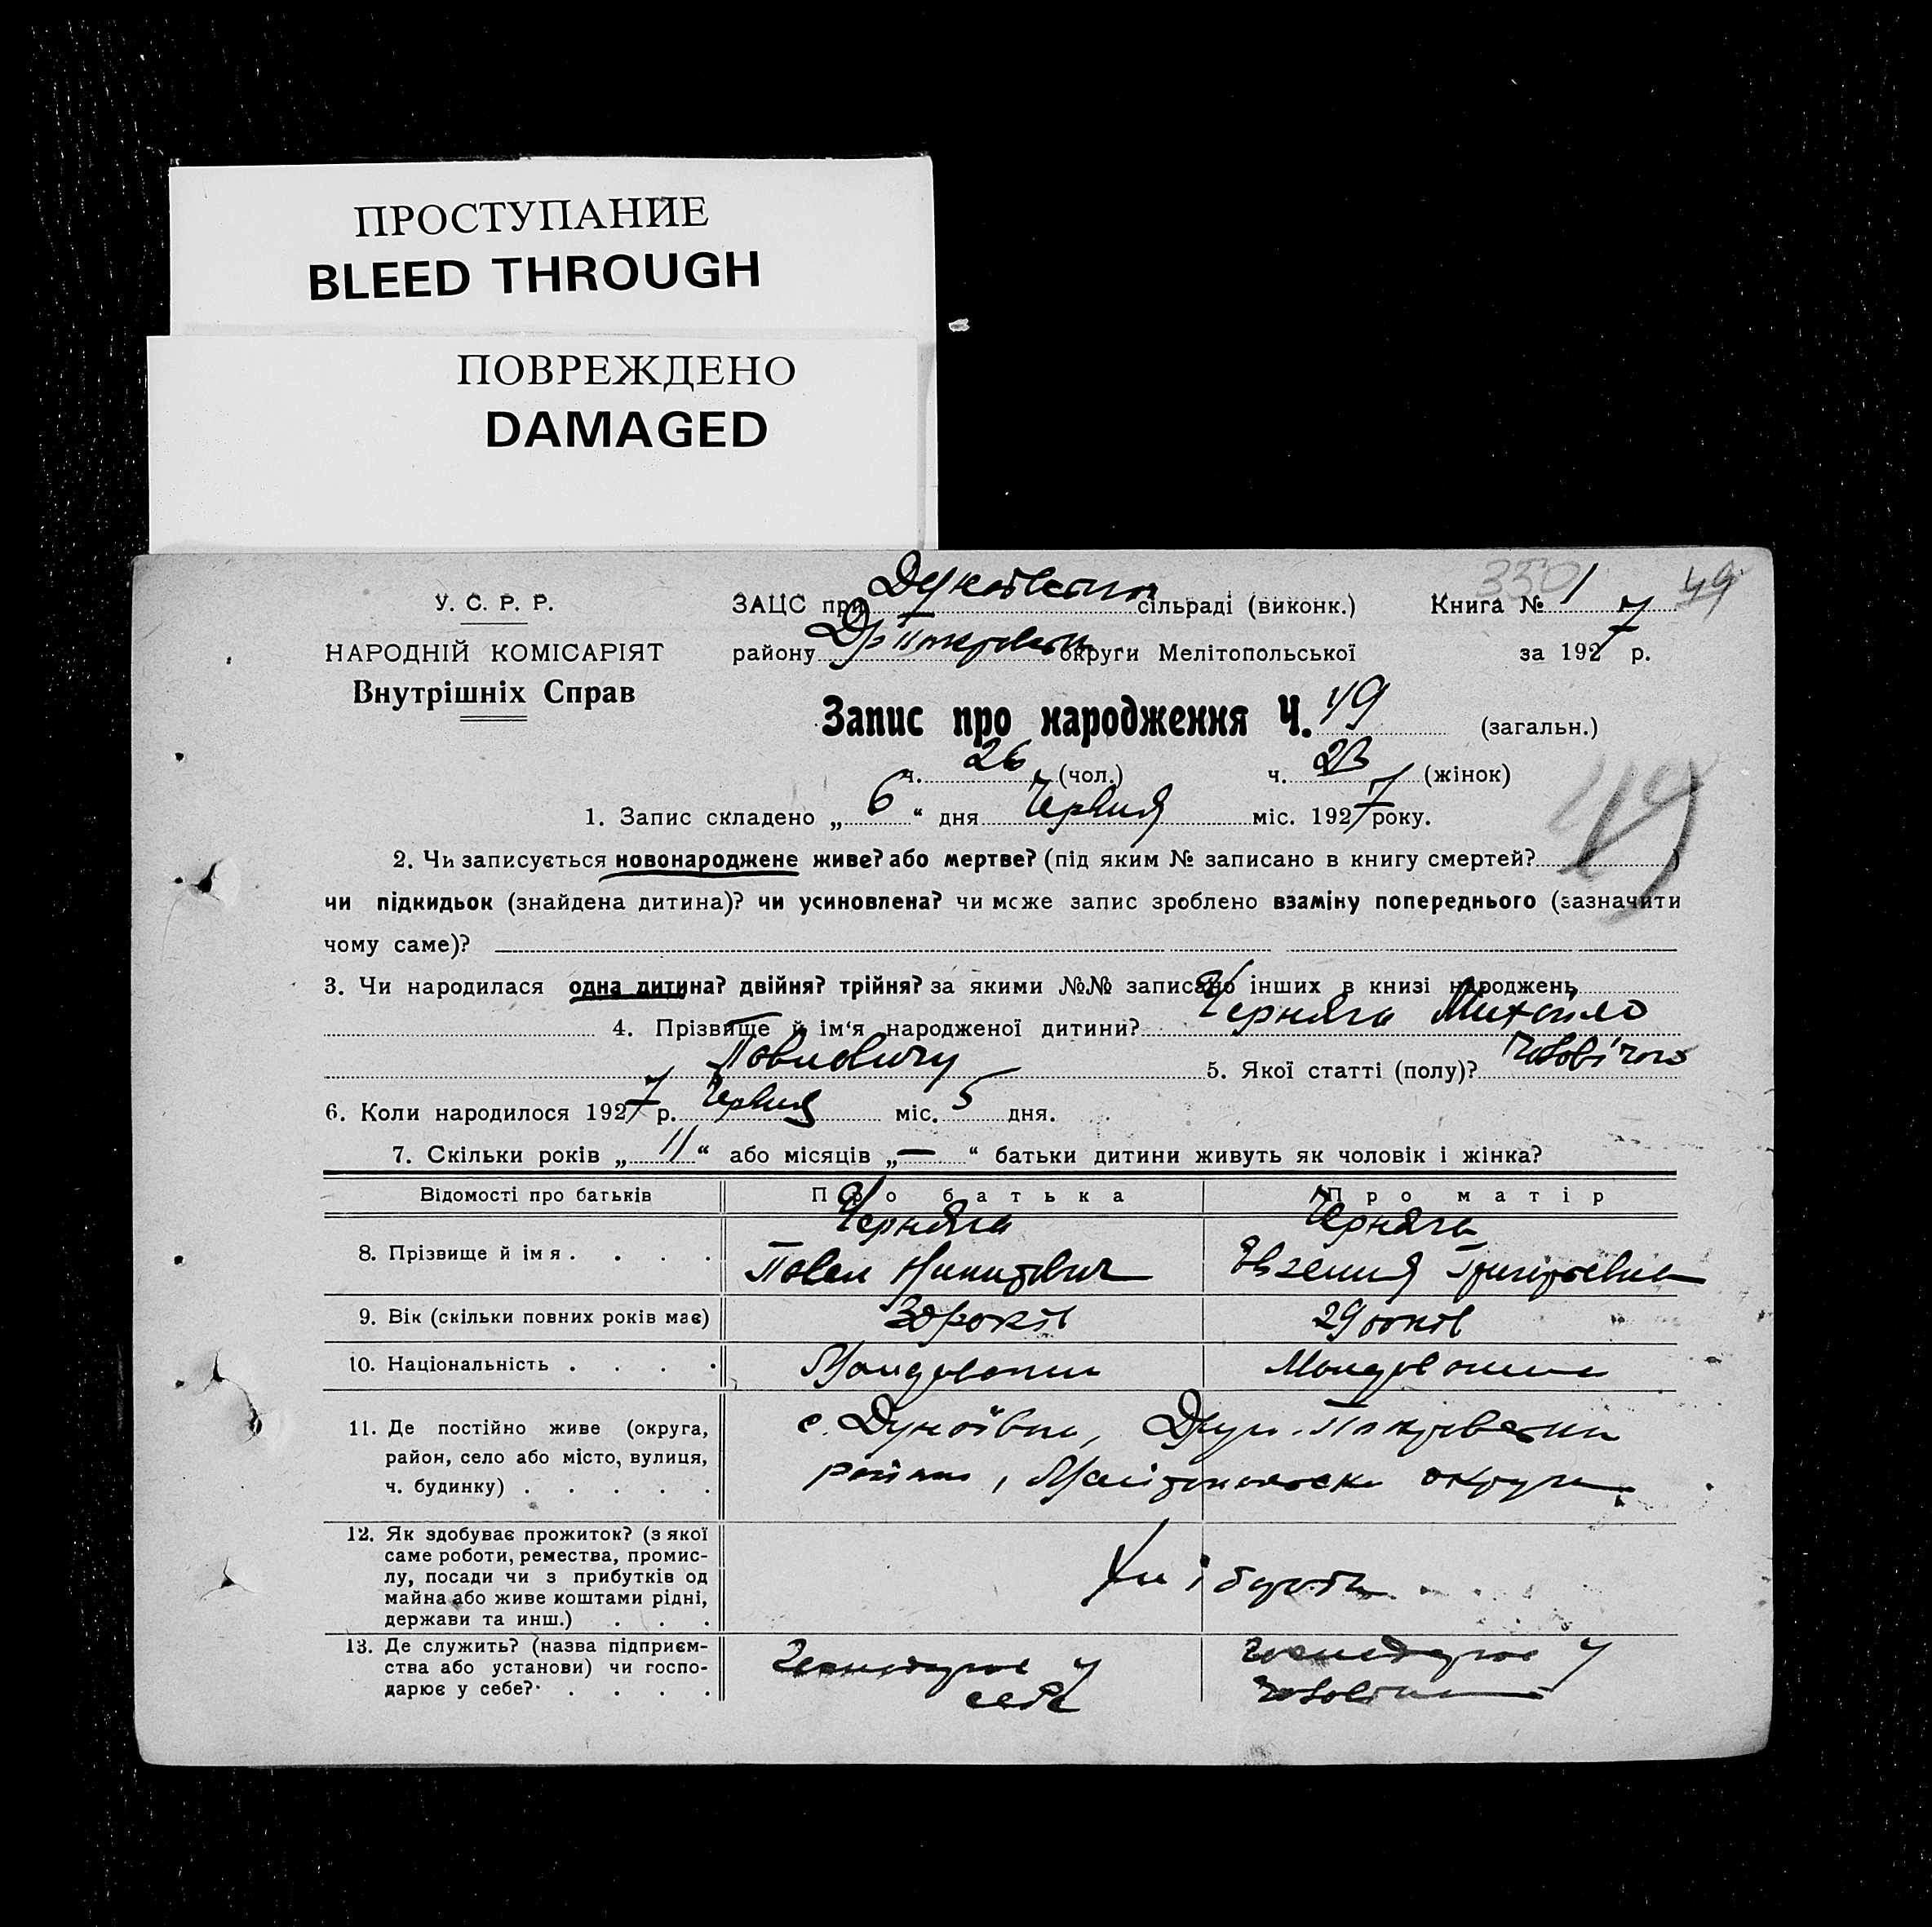 ПРОСТУПАНИЕ
BLEED THROUGH
ПОВРЕЖДЕНО
DAMAGED
350 49
У. С. Р. Р.
НАРОДНІЙ КОМІСАРІЯТ
Внутрішніх Справ
ЗАЦС при сільраді (виконк.) Книга № 1
району округи Мелітопольської за 1927 р.
Запис про народження Ч. 49 (загальн.)
ч. 26 (чол.) ч. 23 (жінок)
1. Запис складено „ 6 “ дня Червня міс. 1927 року.
49
2. Чи записується новонароджене живе? або мертве? (під яким № записано в книгу смертей?
чи підкидьок (знайдена дитина)? чи усиновлена? чи може запис зроблено взаміну попереднього (зазначити
чому саме)?
3. Чи народилася одна дитина? двійня? трійня? за якими №№ записано інших в книзі народжень
4. Прізвище й ім‘я народженої дитини? Черняга Михайло
Павлович 5. Якої статті (полу)? чоловічого
6. Коли народилося 1927 р. Червня міс. 5 дня.
7. Скільки років „ 11 “ або місяців „ — “ батьки дитини живуть як чоловік і жінка?
Відомості про батьків Про батька Про матір
8. Прізвище й імя . . . . Черняга Черняга
Павел Никитович Евгения Григорьевна
9. Вік (скільки повних років має) 30 років 29 років
10. Національність . . . . Молдовани Молдовани
11. Де постійно живе (округа,
район, село або місто, вулиця,
ч. будинку) . . . . .
с. Дунаївка,
району, округи
12. Як здобуває прожиток? (з якої
саме роботи, ремества, промис-
лу, посади чи з прибутків од
майна або живе коштами рідні,
держави та инш.) . . .
Хліборобн
13. Де служить? (назва підприєм-
ства або установи) чи госпо-
дарює у себе? . . . .
Господарює у
себе
господарює у
чоловіка